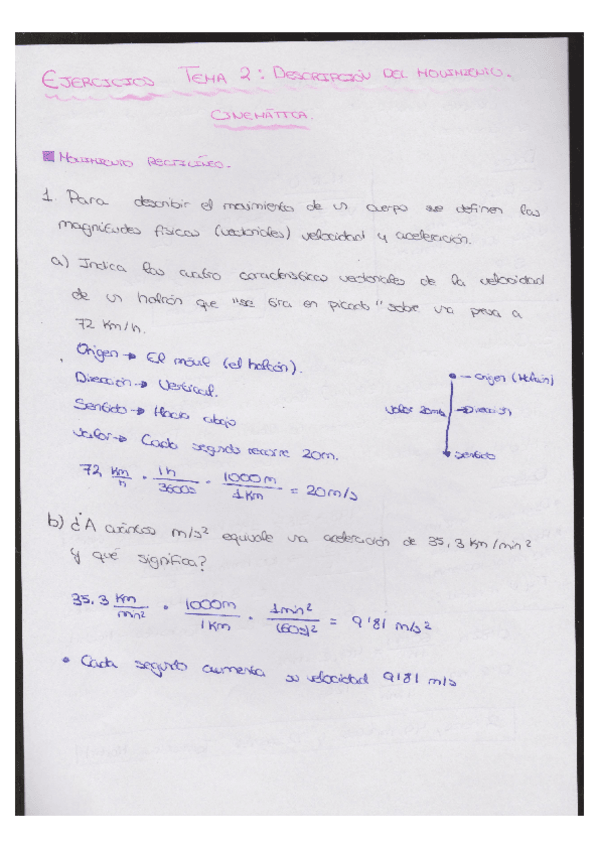 EJERCICIOS TEMA 2: DESCRIPCIÓN DEL MOVIMIENTO.
CINEMÁTICA.
MOVIMIENTO RECTILÍNEO.
1. Para describir el movimiento de un cuerpo se definen las
magnitudes físicas (vectoriales) velocidad y aceleración.
a) Indica las cuatro características vectoriales de la velocidad
de un halcón que "se tira en picado" sobre una presa a
72 Km/h.
Origen → El móvil (el halcón).
Dirección → Vertical.
Sentido → Hacia abajo
Valor → Cada segundo recorre 20m.
Origen (Halcón)
Valor 20m/s → Dirección
Sentido
72 Km/h · 1h/3600s · 1000m/1Km = 20m/s
b) ¿A cuántos m/s² equivale una aceleración de 35,3 Km/min²
y qué significa?
35.3 Km/min² · 1000m/1Km · 1min²/(60s)² = 9'81 m/s²
• Cada segundo aumenta su velocidad 9'81 m/s